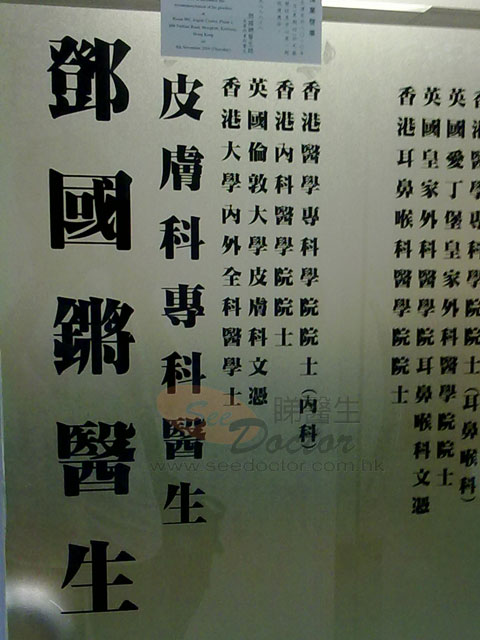 鄧國鏘醫生
皮膚科專科醫生
香港大學內外全科醫學士
英國倫敦大學皮膚科文憑
香港內科醫學院院士
香港醫學專科學院院士(內科)
香港耳鼻喉科醫學院院士
英國皇家外科醫學院耳鼻喉科文憑
英國愛丁堡皇家外科醫學院院士
香港醫學專科學院院士(耳鼻喉科)
Hong Kong
See Doctor 睇醫生
www.seedoctor.com.hk